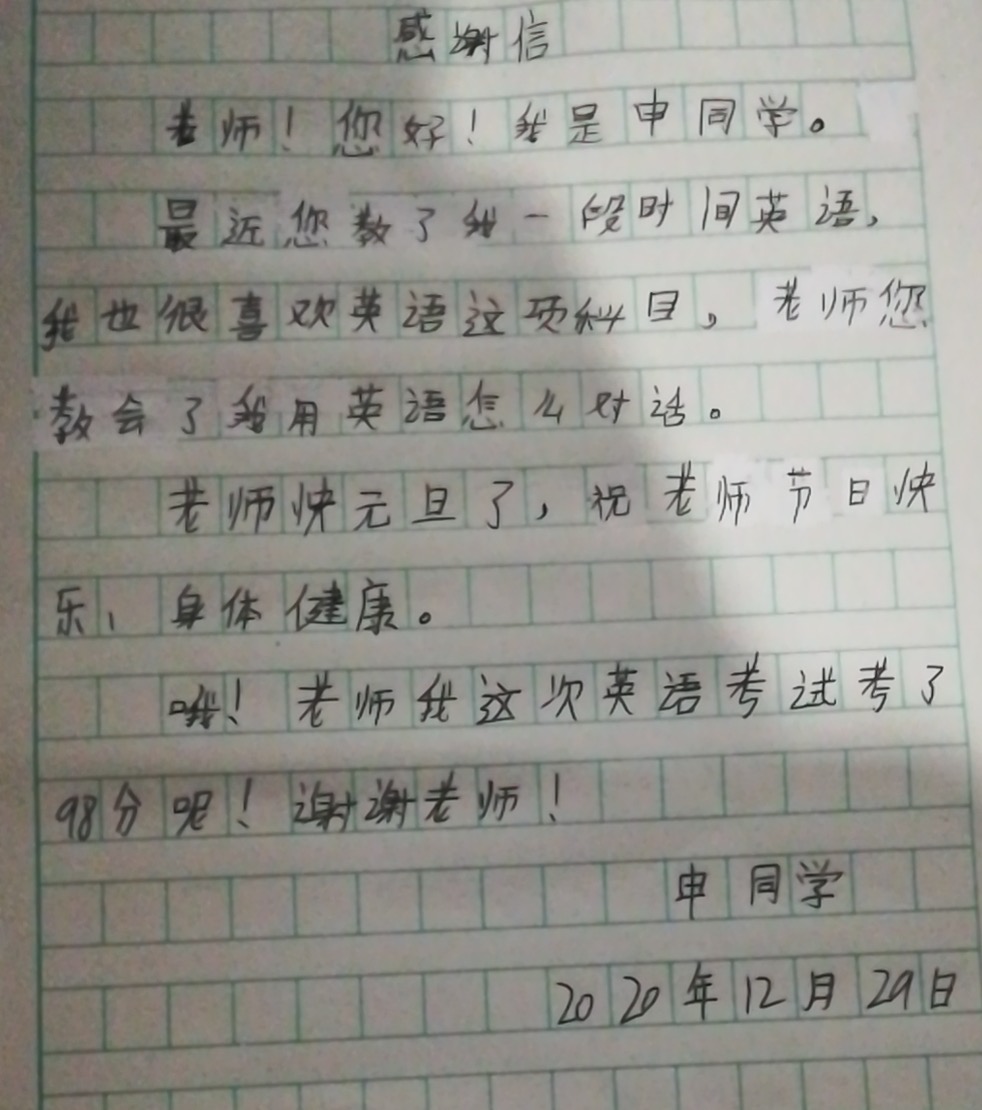 感谢信
老师！您好！我是申同学。
最近您教了我一段时间英语，
我也很喜欢英语这项科目，老师您
教会了我用英语怎么对话。
老师快元旦了，祝老师节日快
乐、身体健康。
哦！老师我这次英语考试考了
98分呢！谢谢老师！
申同学
2020年12月29日